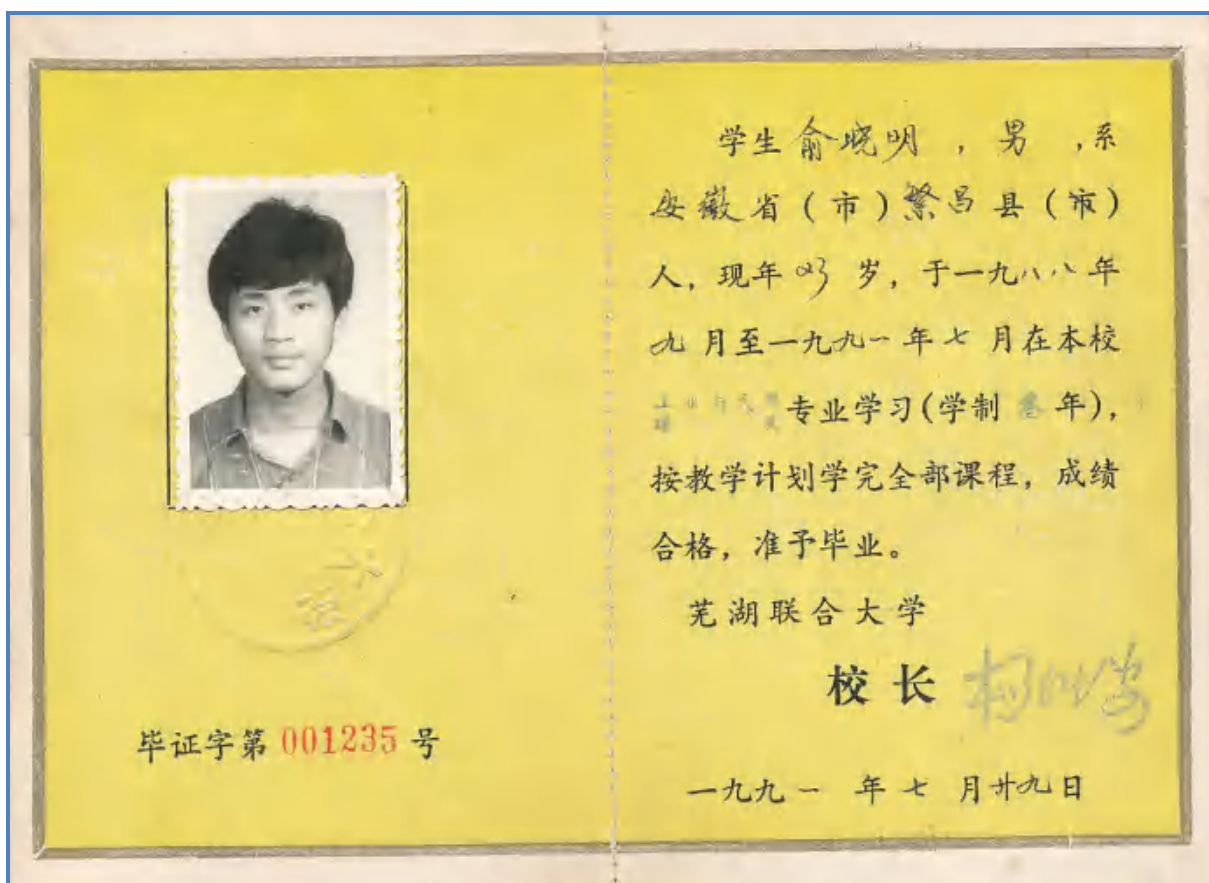 毕证字第 001235 号
学生俞晓明，男，系
安徽省（市）繁昌县（市）
人，现年23岁，于一九八八年
九月至一九九一年七月在本校
专业学习(学制叁年)，
按教学计划学完全部课程，成绩
合格，准予毕业。
芜湖联合大学
校长
一九九一年七月廿九日